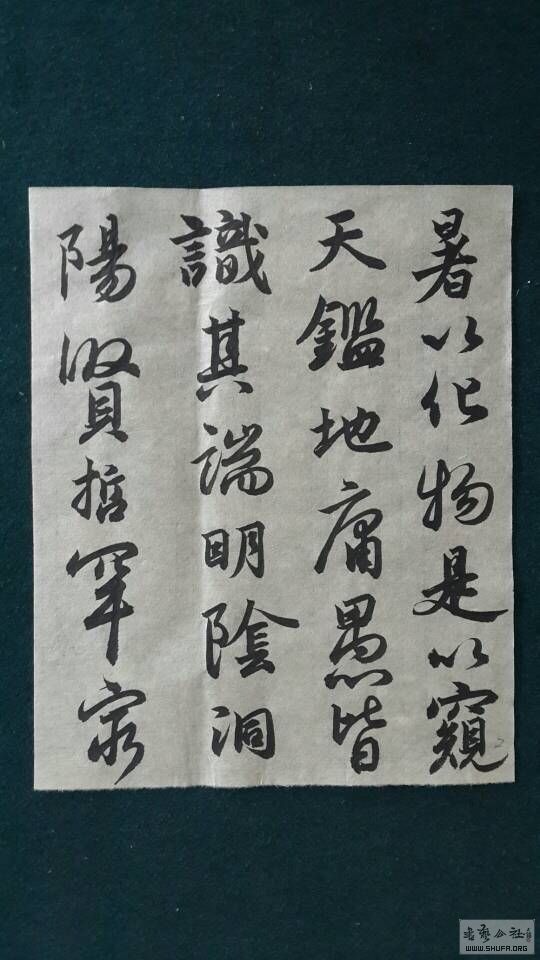 暑以化物是以窺
天鑑地庸愚皆
識其端明陰洞
陽賢哲罕窮
书艺公社
WWW.SHUFA.ORG